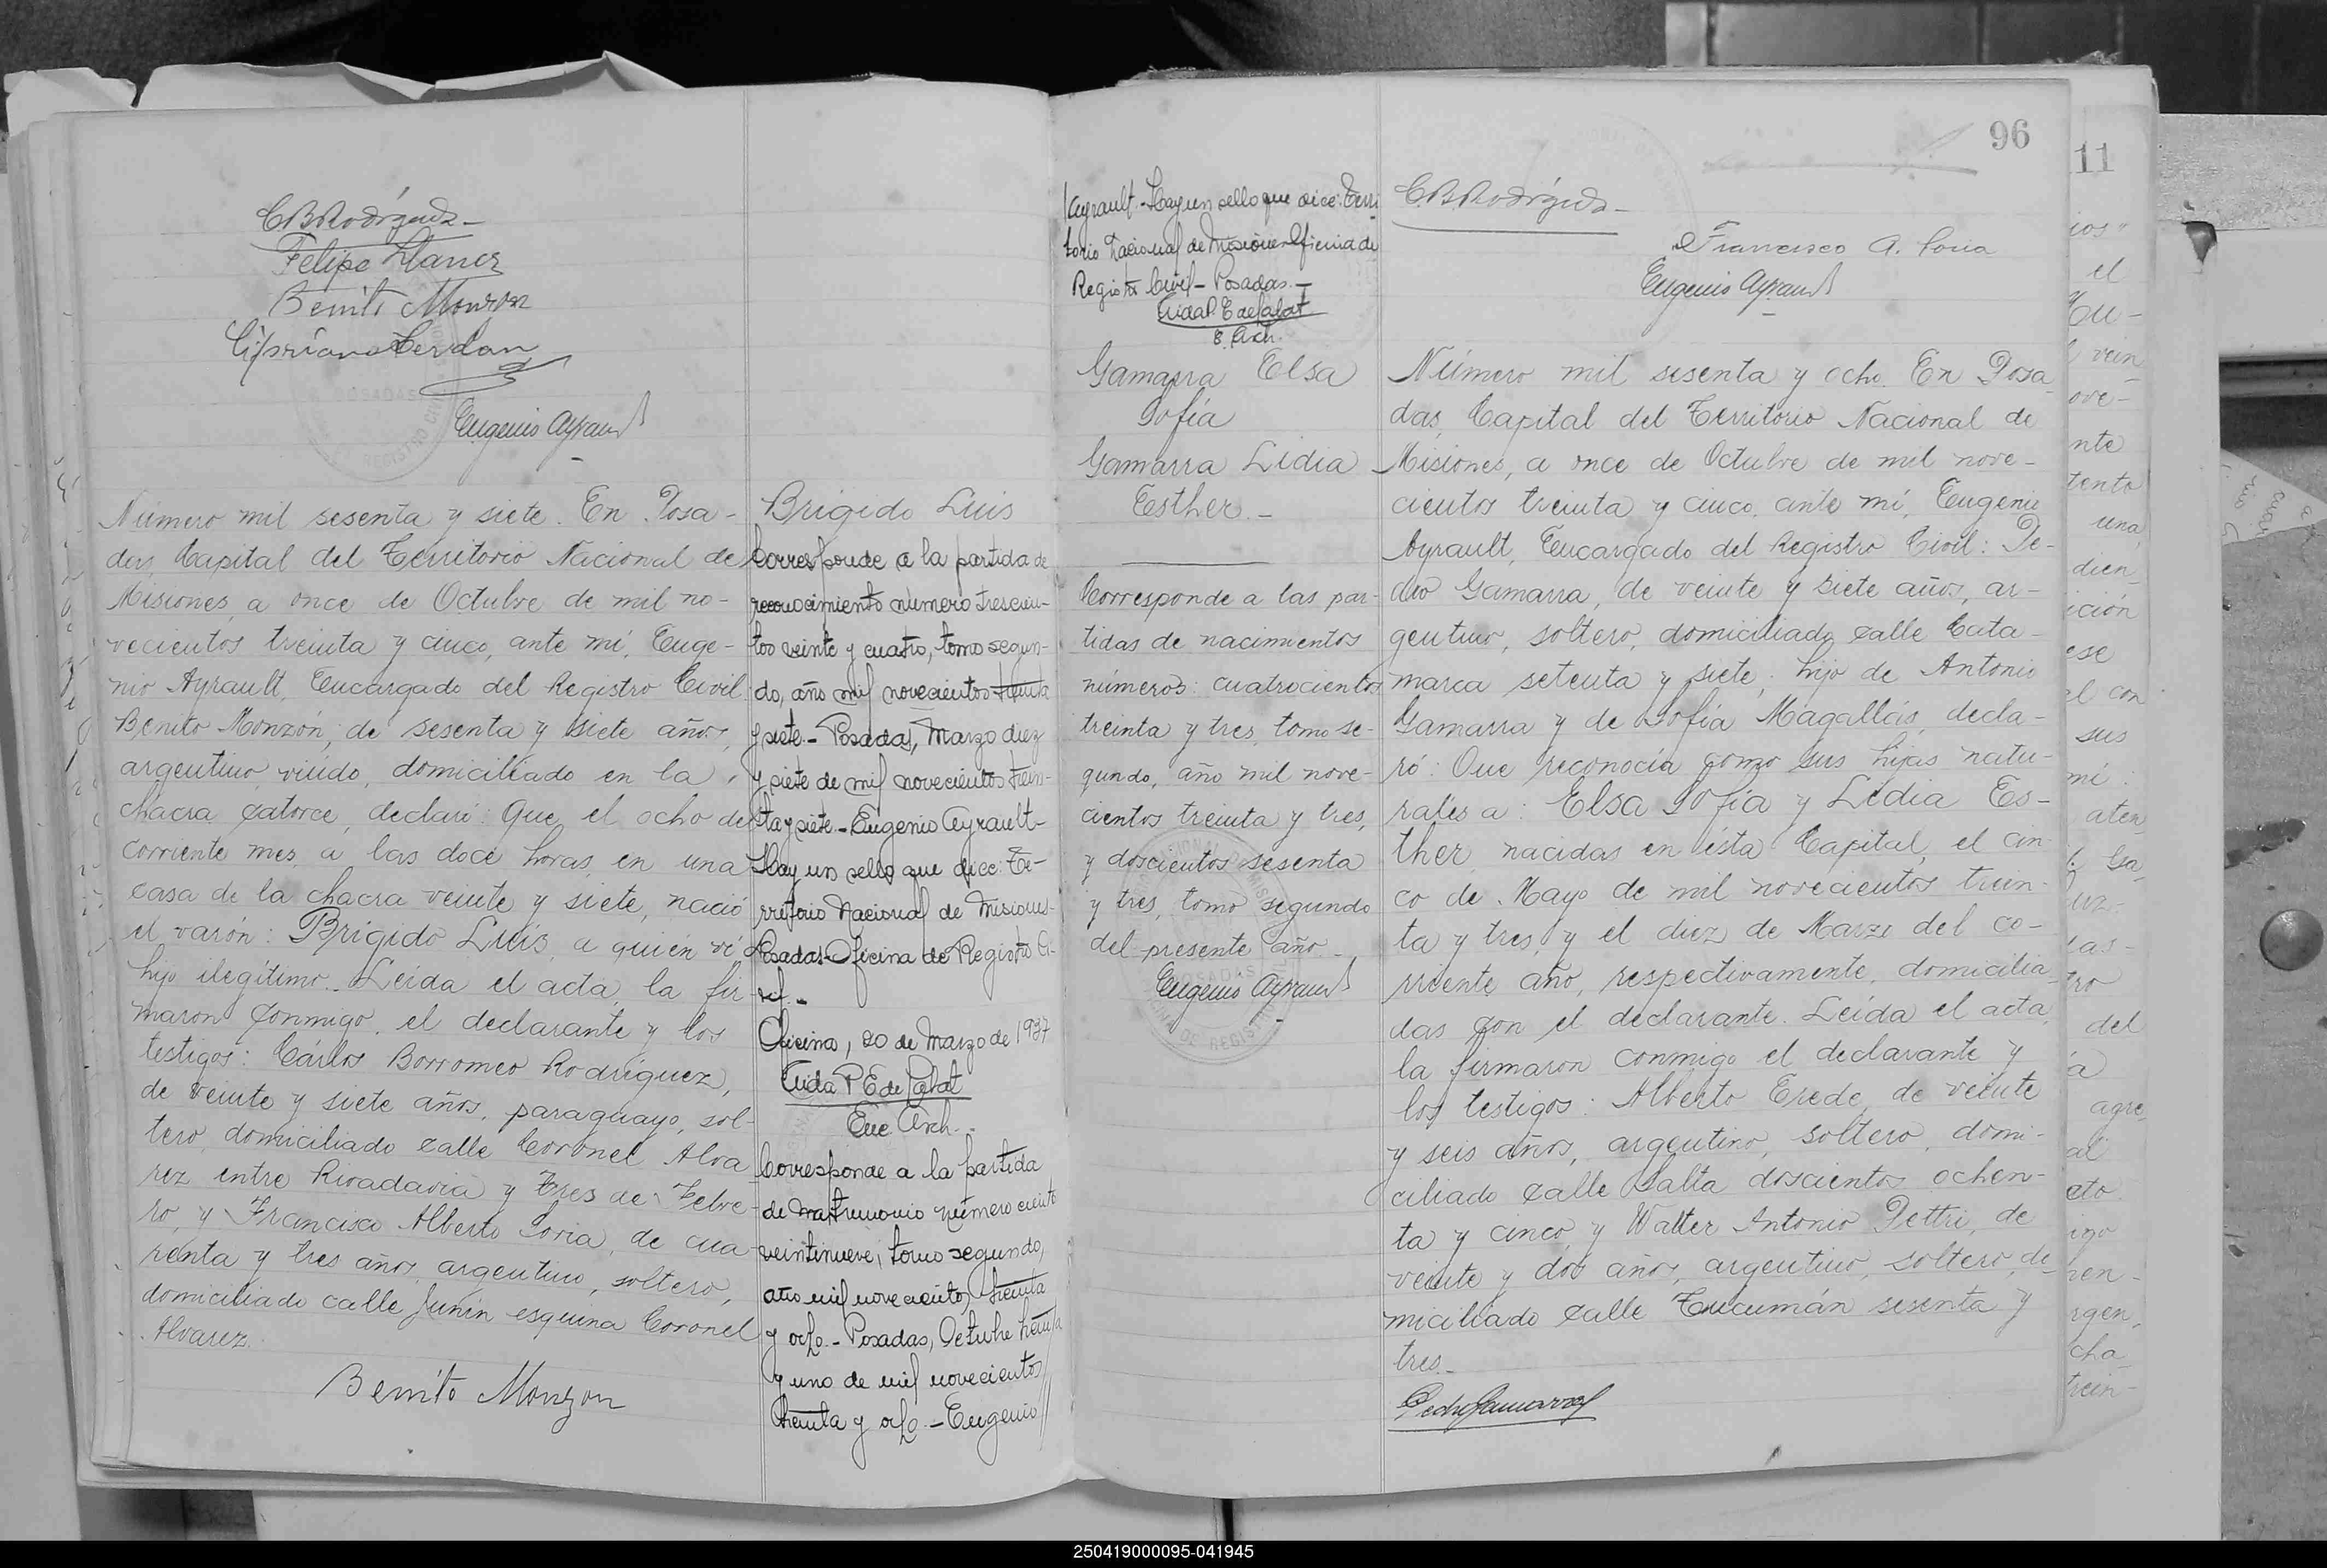 CBRodríguez
Felipe Llanes
Benito Monzon
Cipriano Cerdan
Eugenio Ayrault
Número mil sesenta y siete. En Posa-
das, Capital del Territorio Nacional de
Misiones, a once de Octubre de mil no-
vecientos treinta y cinco, ante mí, Euge-
nio Ayrault, Encargado del Registro Civil
Benito Monzón, de sesenta y siete años,
argentino, viudo, domiciliado en la
chacra catorce, declaró: Que el ocho del
corriente mes, a las doce horas, en una
casa de la chacra veinte y siete, nació
el varón: Brígido Luís, a quién ví
hijo ilegítimo. Leída el acta, la fir-
maron conmigo, el declarante y los
testigos: Cárlos Borromeo Rodríguez,
de veinte y siete años, paraguayo, sol-
tero, domiciliado calle Coronel Alva
rez entre Rivadavia y Tres de Febre-
ro, y Francisco Alberto Soria, de cua-
renta y tres años, argentino, soltero,
domiciliado calle Junín esquina Coronel
Alvarez.
Benito Monzon
Brigido Luis
Corresponde a la partida de
reconocimiento número trescien-
tos veinte y cuatro, tomo segun-
do, año mil novecientos treinta
y siete.- Posadas, Marzo diez
y siete de mil novecientos trein-
ta y siete.- Eugenio Ayrault-
Hay un sello que dice: Te-
rritorio Nacional de Misiones-
Posadas-Oficina de Registro Ci-
vil.-
Oficina, 20 de Marzo de 1937
Enc. Arch.
Corresponde a la partida
de matrimonio número ciento
veintinueve, tomo segundo,
año mil novecientos treinta
y ocho.- Posadas, Octubre treinta
y uno de mil novecientos
treinta y ocho.- Eugenio//
96
/Ayrault.- Hay un sello que dice: Terri
torio Nacional de Misiones-Oficina de
Registro Civil- Posadas.-
CBRodríguez
Francisco A. Soria
Eugenio Ayrault
Gamarra Elsa
Sofía
Gamarra Lidia
Esther.-
Corresponde a las par-
tidas de nacimientos
números: cuatrocientos
treinta y tres, tomo se-
gundo, año mil nove-
cientos treinta y tres,
y doscientos sesenta
y tres, tomo segundo
del presente año.-
Eugenio Ayrault
Número mil sesenta y ocho. En Posa
das, Capital del Territorio Nacional de
Misiones, a once de Octubre de mil nove-
cientos treinta y cinco, ante mí, Eugenio
Ayrault, Encargado del Registro Civil: Pe-
dro Gamarra, de veinte y siete años, ar-
gentino, soltero, domiciliado calle Cata-
marca setenta y siete, hijo de Antonio
Gamarra y de Sofía Magallás, decla-
ró: Que reconocía como sus hijas natu-
rales a: Elsa Sofía y Lidia Es-
ther, nacidas en ésta Capital, el cin-
co de Mayo de mil novecientos trein-
ta y tres, y el diez de Marzo del co-
rriente año, respectivamente, domicilia-
das con el declarante. Leída el acta,
la firmaron conmigo el declarante y
los testigos: Alberto Erede, de veinte
y seis años, argentino, soltero, domi-
ciliado calle Salta doscientos ochen-
ta y cinco, y Walter Antonio Pettri, de
veinte y dos años, argentino, soltero, do-
miciliado calle Tucumán sesenta y
tres.-
Pedro Gamarra
11
250419000095-041945